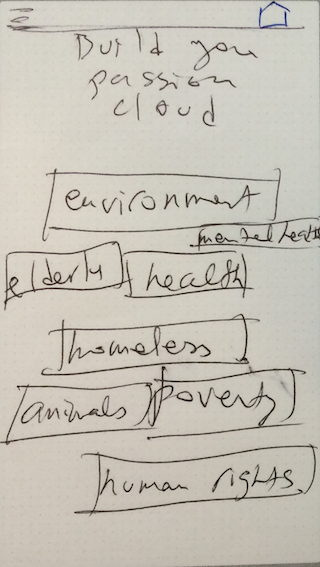 Build you
passion
cloud
environment
mental health
elderly health
homeless
animals poverty
human rights